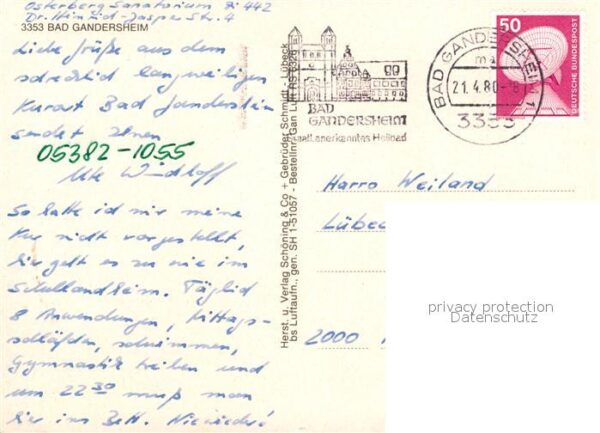 Osterberg Sanatorium Zi 442
Dr. Heinrich-Jasper Str. 4
3353 BAD GANDERSHEIM
Liebe Grüße aus dem
schrecklich langweiligen
Kurort Bad Gandersheim
sendet Ihnen
05382-1055
Ute Windhoff
So hatte ich mir meine
Kur nicht vorgestellt,
hier geht es zu wie im
Schullandheim. Täglich
8 Anwendungen, Mittags-
schläfchen, schwimmen,
Gymnastik treiben und
um 22 30 muß man
hier ins Bett. Nie wieder!
Herst. u. Verlag Schöning & Co + Gebrüder Schmidt - Lübeck
bs Luftaufn., gen. SH 1-51057 - Bestellnr. Gan
BAD
GANDERSHEIM
staatl. anerkanntes Heilbad
BAD GANDERSHEIM 1
ma
21.4.80-18
3353
50
DEUTSCHE BUNDESPOST
Harro Weiland
Lübec
2000
privacy protection
Datenschutz